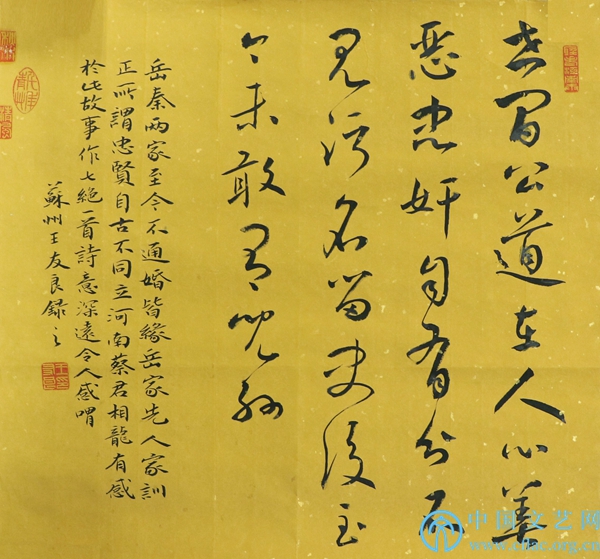 世間公道在人心善
惡忠奸自有分
見污名留史後至
今未敢
岳秦兩家至今不通婚皆緣岳家先人家訓
正所謂忠賢自古不同立河南蔡君相龍有感
於此故事作七絕一首詩意深遠令人感喟
蘇州王友良錄之
中国文艺网
www.cflac.org.cn